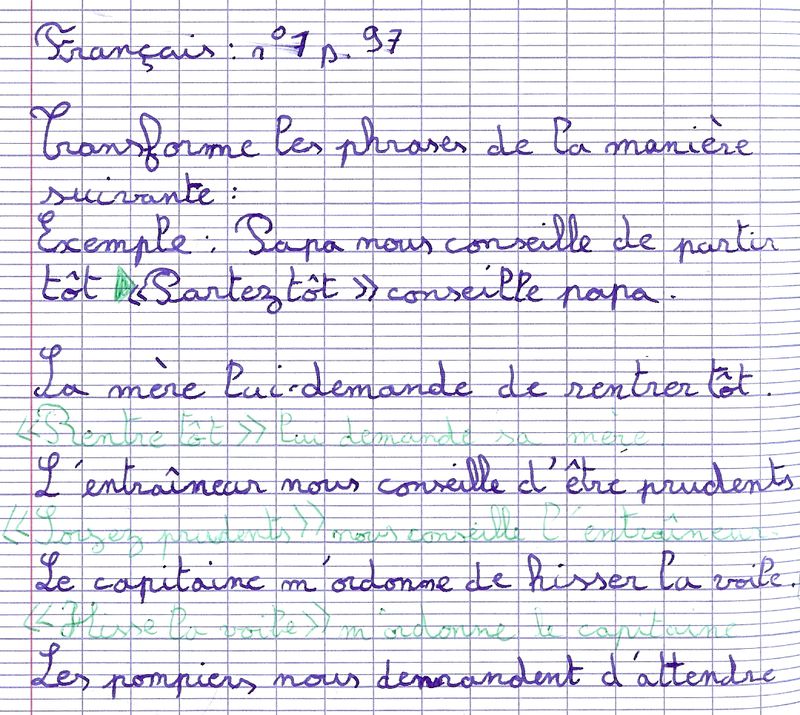 Français : n°1 p. 97
Transforme les phrases de la manière
suivante :
Exemple : Papa nous conseille de partir
tôt «Partez tôt» conseille papa.
La mère lui demande de rentrer tôt.
«Rentre tôt» lui demande sa mère.
L'entraîneur nous conseille d'être prudents
«Soyez prudents» nous conseille l'entraîneur.
Le capitaine m'ordonne de hisser la voile.
«Hisse la voile» m'ordonne le capitaine
Les pompiers nous demandent d'attendre